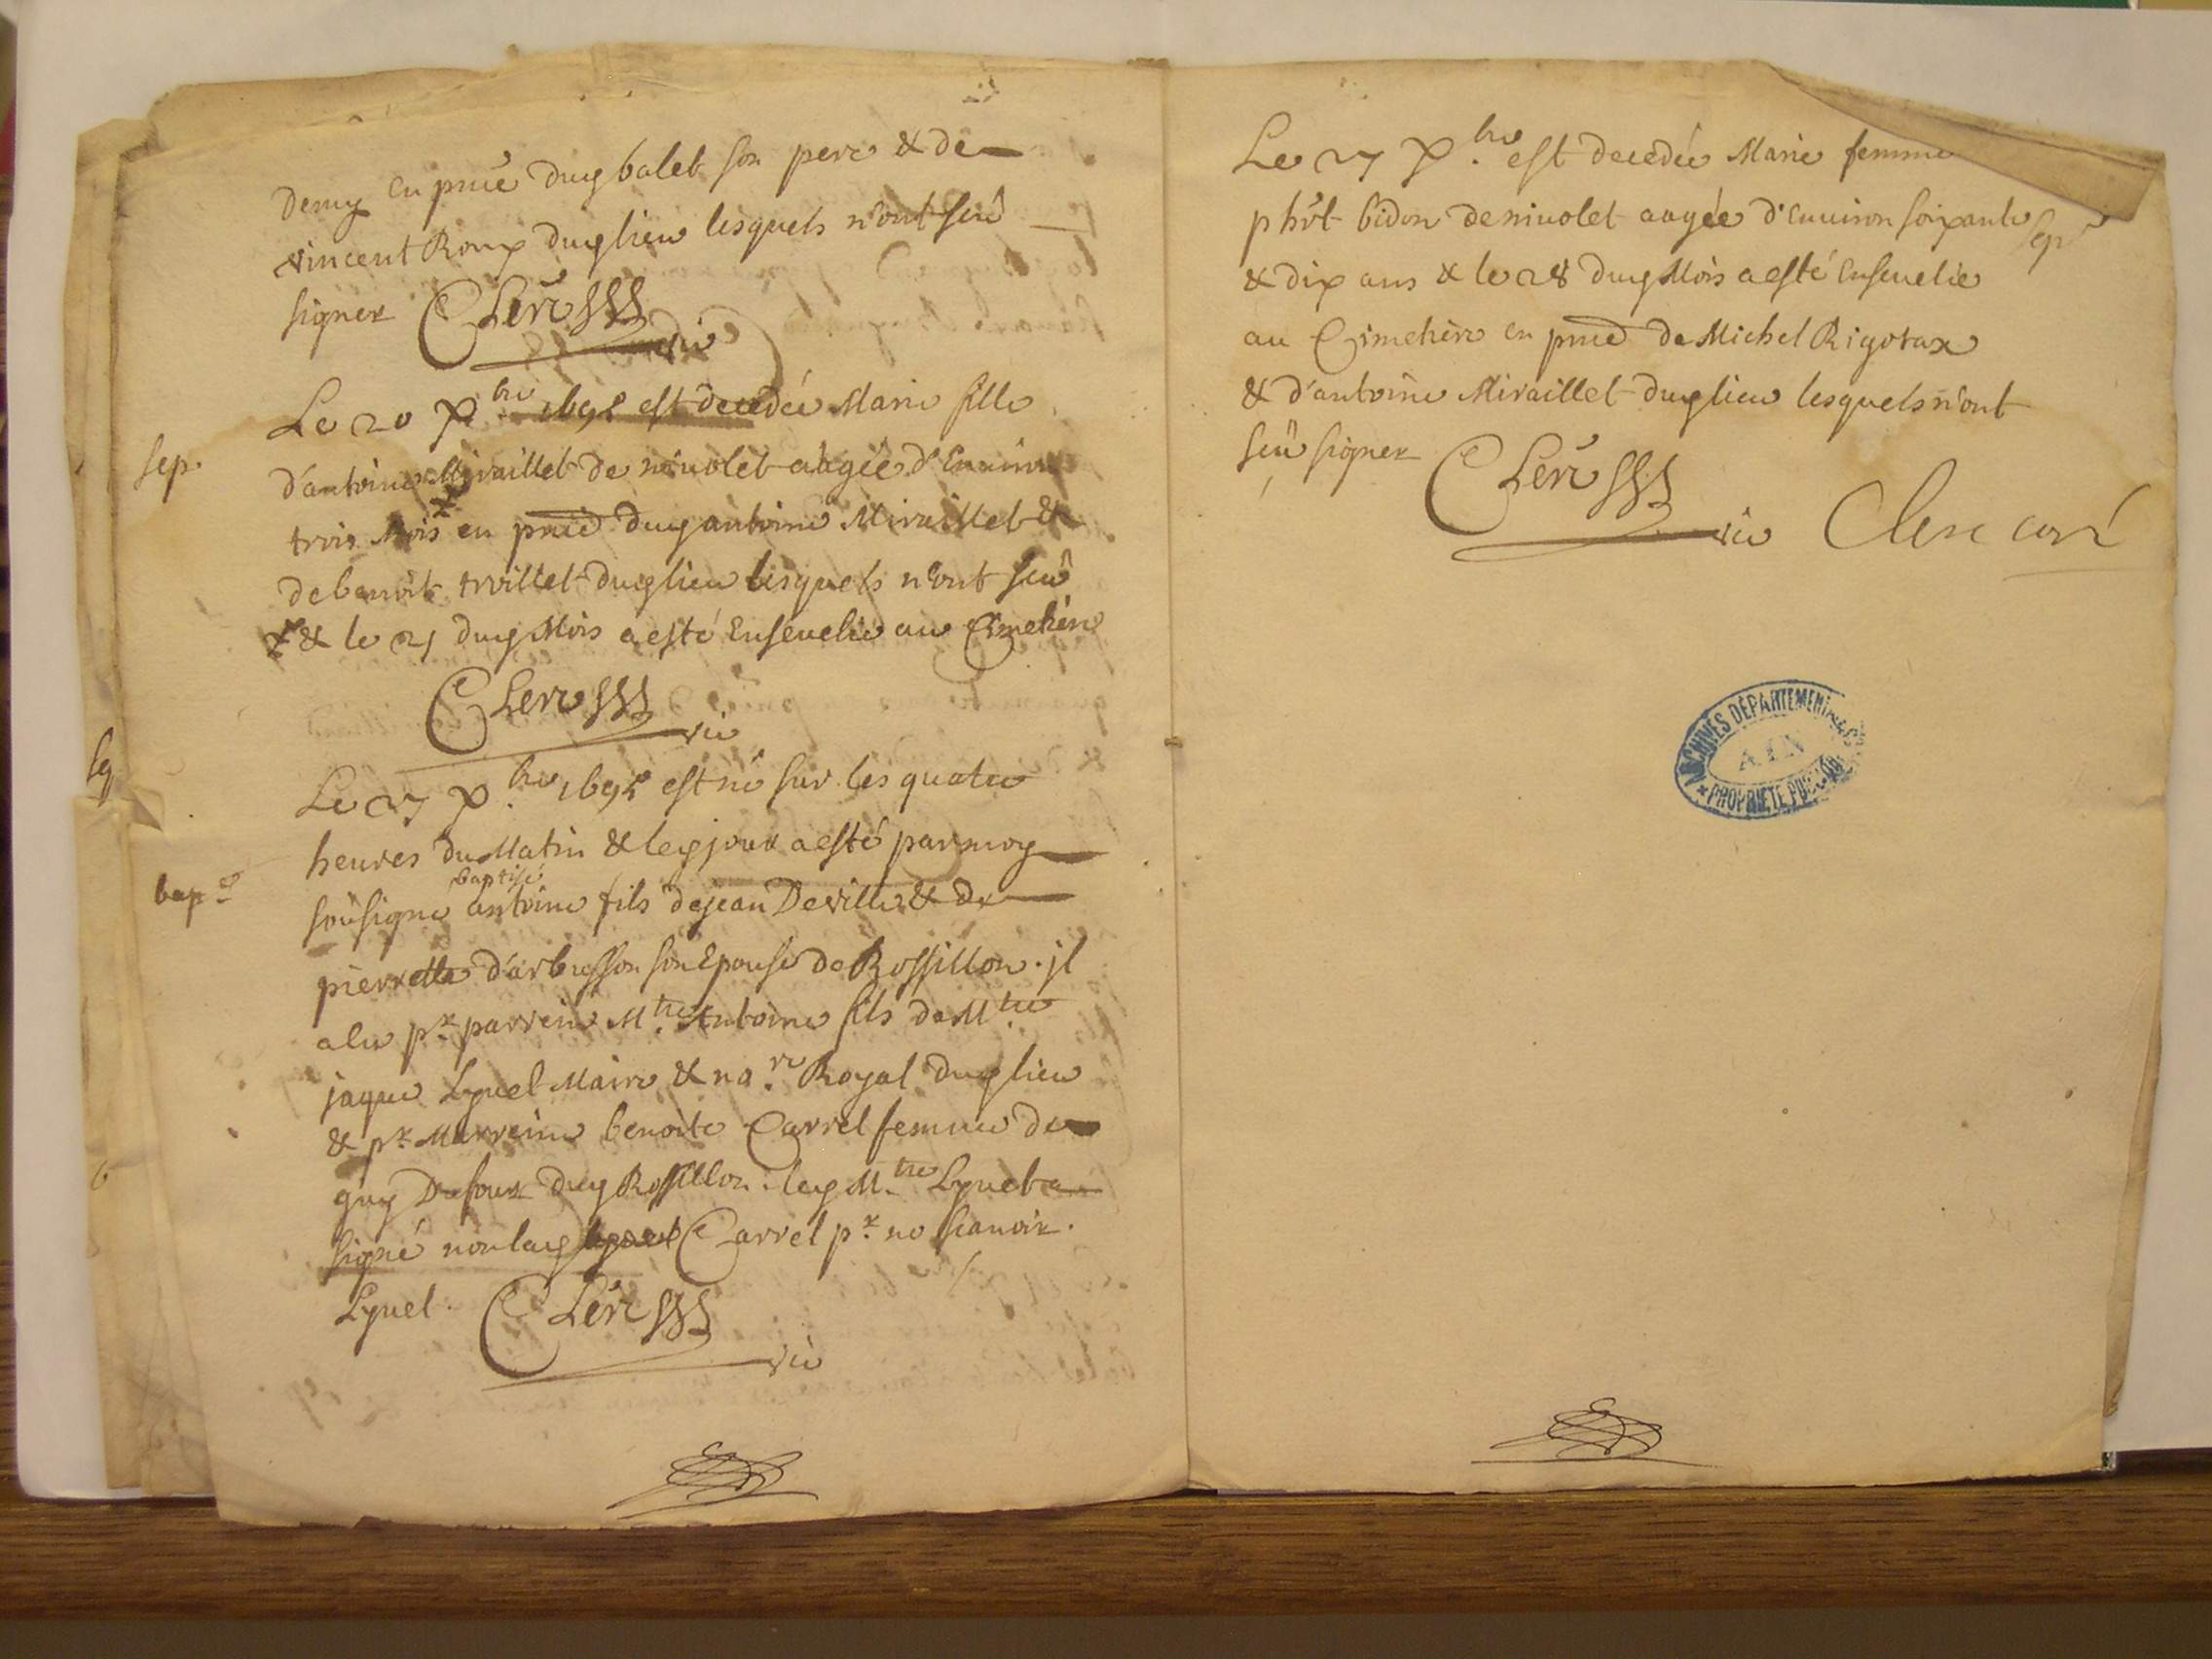 demy en pnce dug balet son pere & de
vincent Roux dug lieu lesquels n'ont sceu
signer CLerc
vic
Le 20 Xbre 1695 est decedée Marie fille
sep.
d'antoine Miraillet de nivolet aagée d'Environ
trois Mois en pnce dug antoine Miraillet &
de benoit trvillet dug lieu lesquels n'ont sceu
& le 21 dug Mois a esté Ensevelie au Cimetiere
CLerc
vic
Le 27 Xbre 1695 est né sur les quatre
heures du Matin & leg jour a esté par moy
bap.
baptisé
sousigne antoine fils de jean Deville & de
pierrette d'arbresson son Epouse de Rossillon. jl
a eu pr parrein Mtre Antoine fils de Mtre
jaque Lyuel Maire & nare Royal dug lieu
& pr Marreine benoite Carrel femme de
guy Dufour dug Rossillon. leg Mtre Lyuel a
signé non lag Carrel pr ne scavoir.
Lyuel. CLerc
vic
Le 27 Xbre est decedée Marie femme
phbt bidon de nivolet aagée d'Environ soixante
sep
& dix ans & le 28 dug Mois a esté Ensevelie
au Cimetiere en pnce de Michel Rigotax
& d'antoine Miraillet dug lieu lesquels n'ont
sceu signer CLerc
vic Clerc curé
ARCHIVES DÉPARTEMENTALES
AIN
PROPRIÉTÉ PUBLIQUE